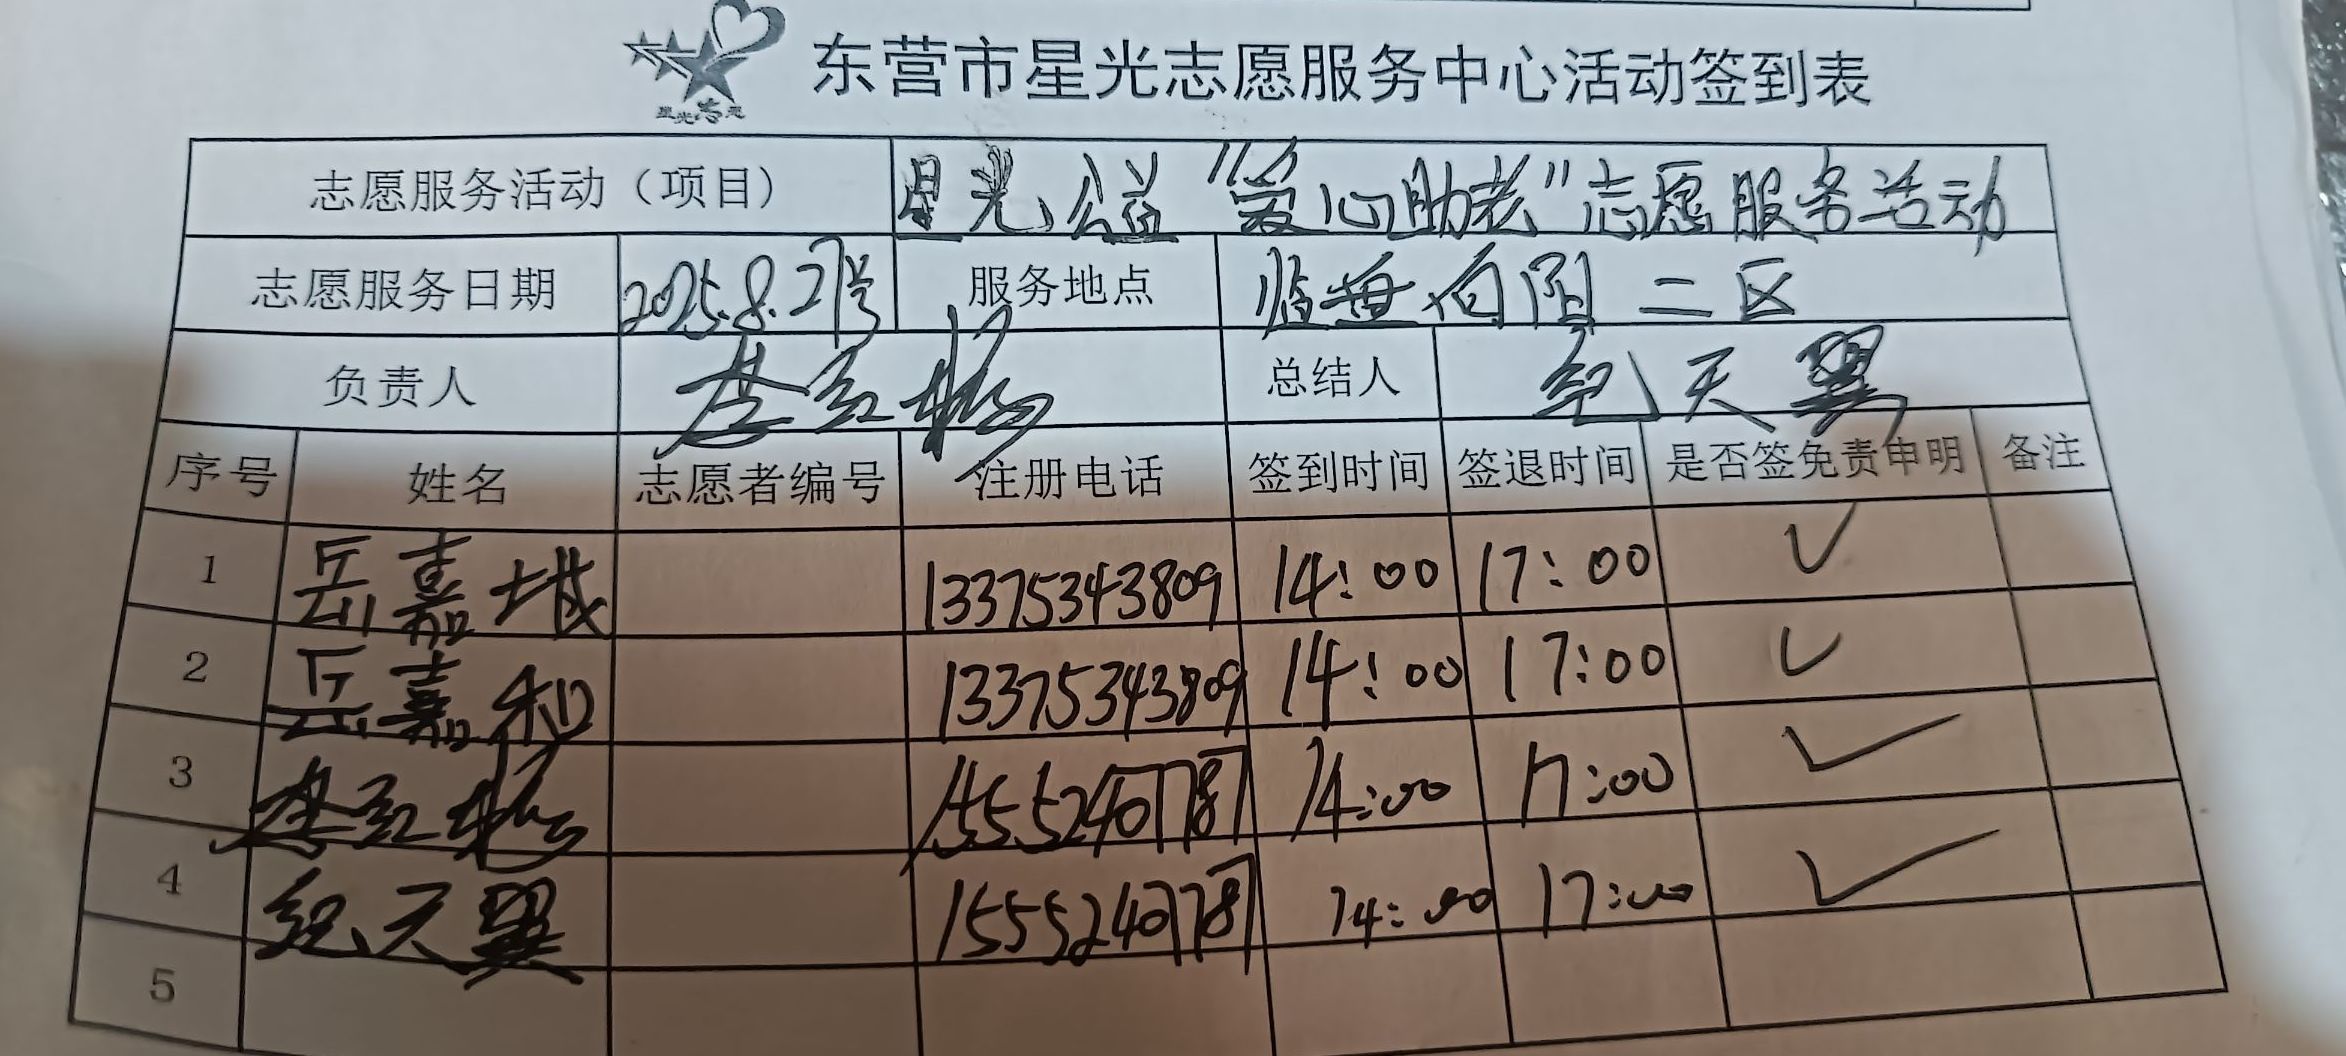 星光志愿
东营市星光志愿服务中心活动签到表
志愿服务活动（项目） 星光公益“爱心助老”志愿服务活动
志愿服务日期 2025.8.27号 服务地点 临盘向阳二区
负责人 李红杨 总结人 纪天翼
序号 姓名 志愿者编号 注册电话 签到时间 签退时间 是否签免责申明 备注
1 岳嘉城 13375343809 14:00 17:00 ✓
2 岳嘉和 13375343809 14:00 17:00 ✓
3 李红杨 15552407787 14:00 17:00 ✓
4 纪天翼 15552407787 14:00 17:00 ✓
5